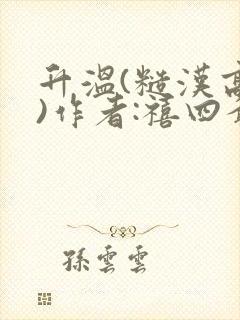 升溫(糙漢高
)作者:禧四
孫雲雲